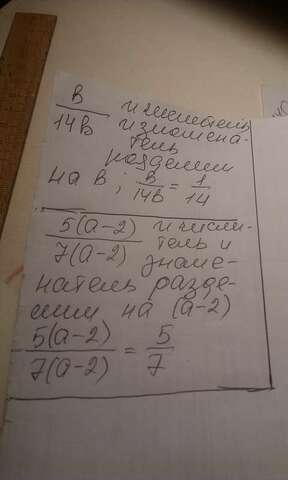 в/14в и числитель
и знамена-
тель
разделим
на в; в/14в = 1/14
5(а-2)/7(а-2) и числи-
тель и
знаме-
натель разде-
лим на (а-2)
5(а-2)/7(а-2) = 5/7